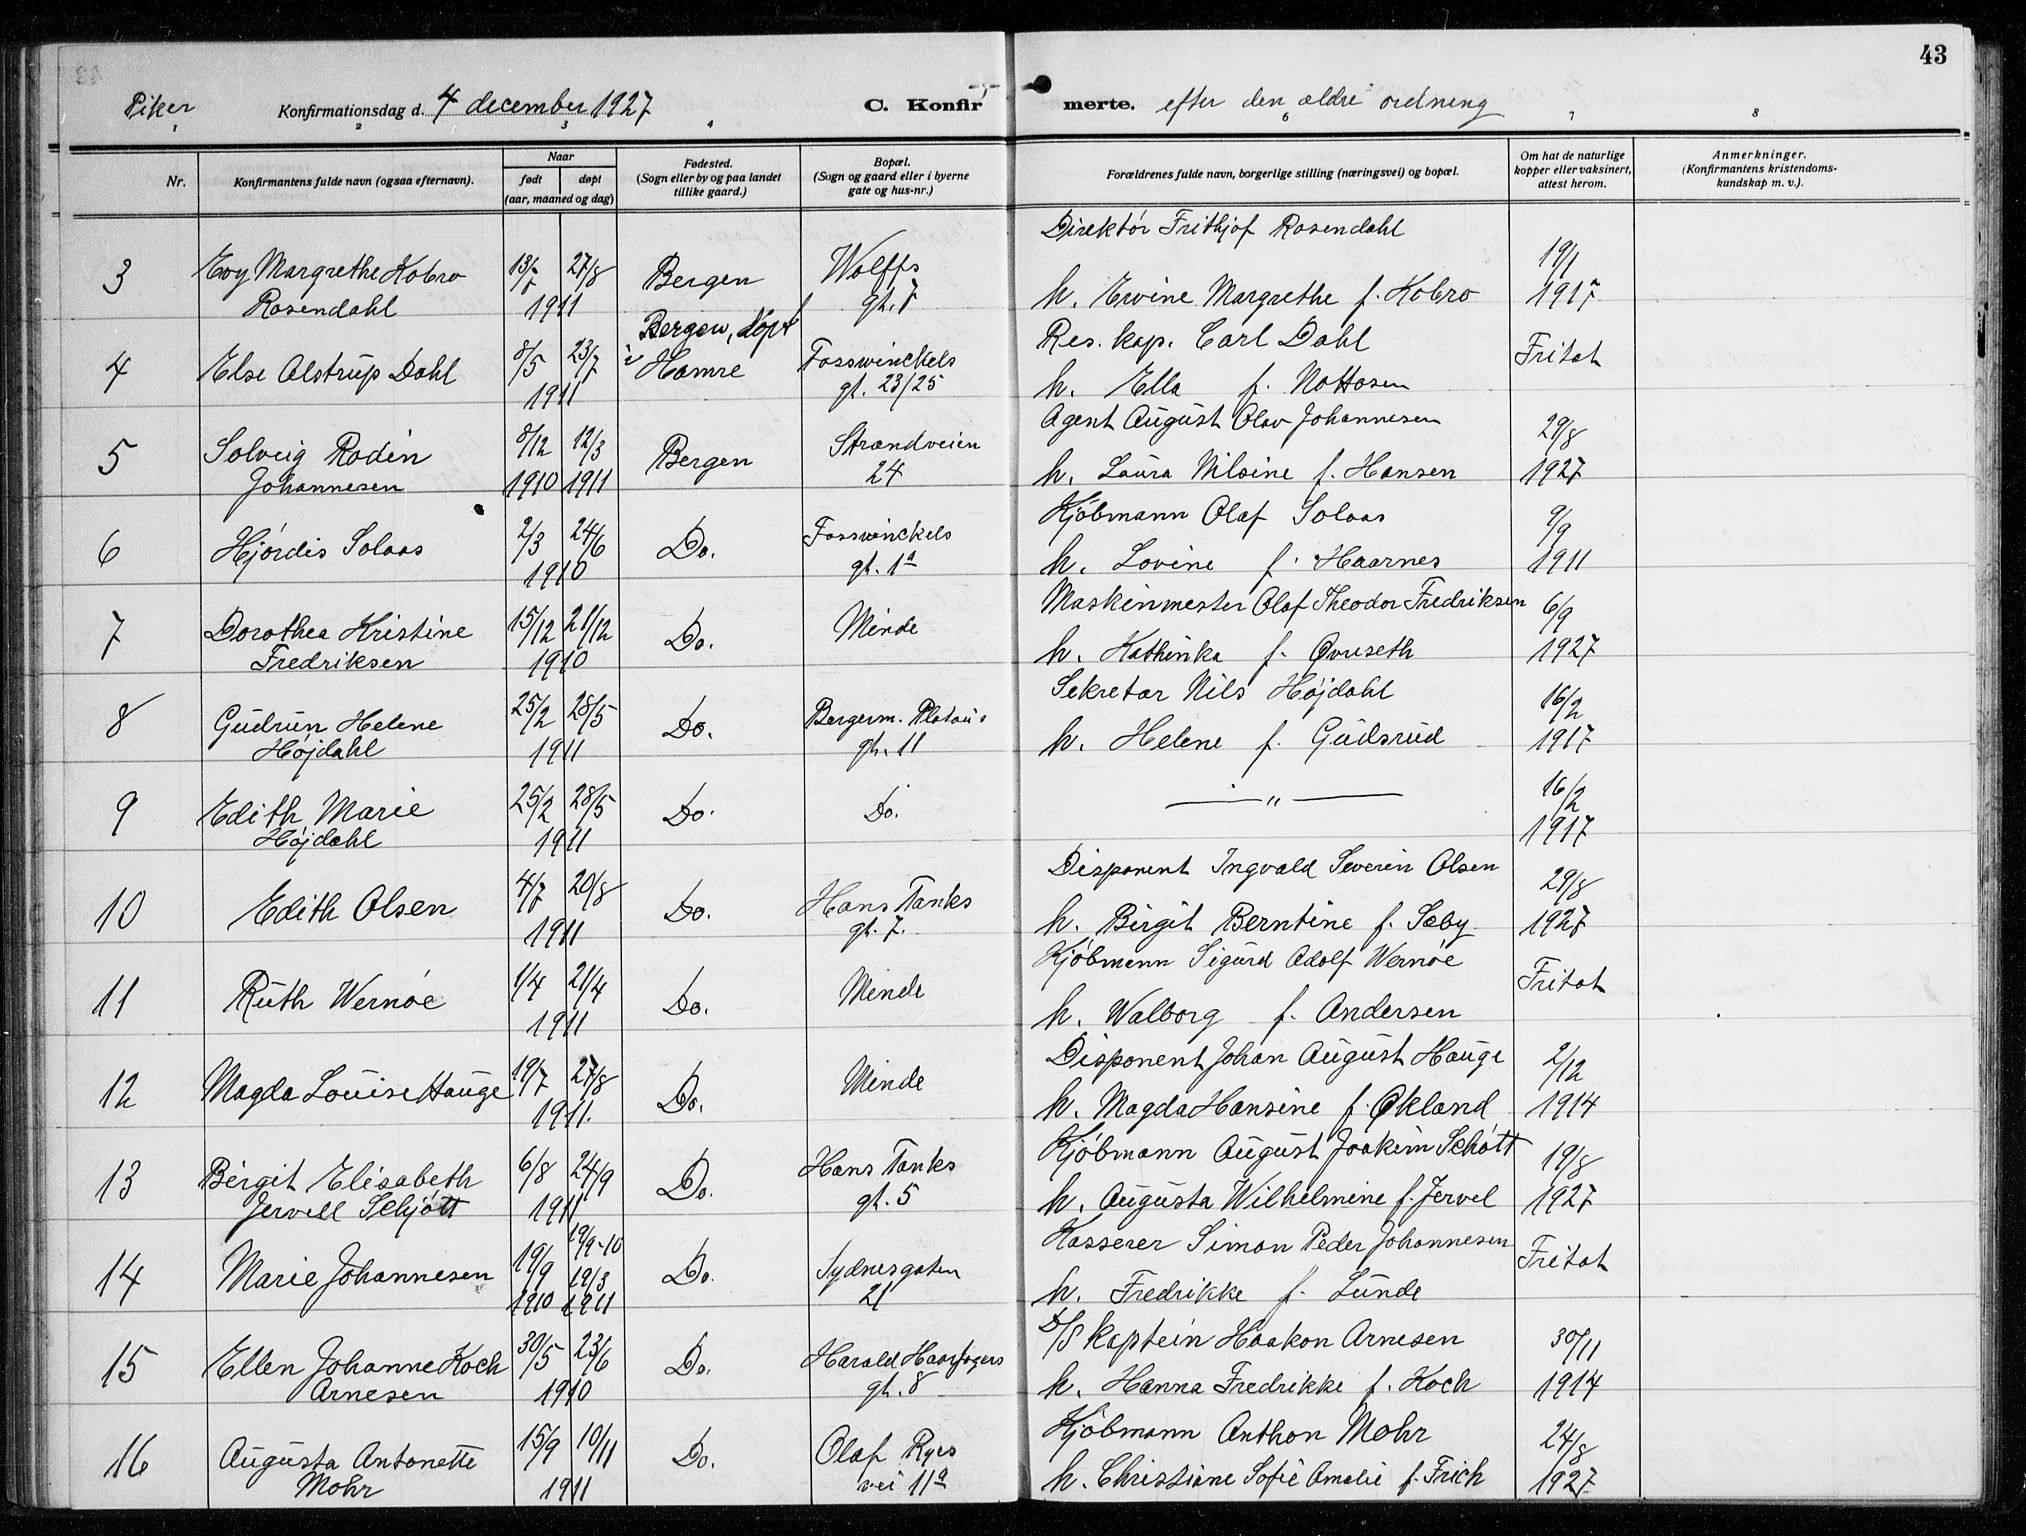 43
Piker Konfirmationsdag d. 4 december 1927 C. Konfirmerte. efter den ældre ordning
1 2 3 4 6 7 8
Nr. Konfirmantens fulde navn (ogsaa efternavn). Naar født døpt (aar, maaned og dag) Fødested. (Sogn eller by og paa landet tillike gaard.) Bopæl. (Sogn og gaard eller i byerne gate og hus-nr.) Forældrenes fulde navn, borgerlige stilling (næringsvei) og bopæl. Om hat de naturlige kopper eller vaksinert, attest herom. Anmerkninger. (Konfirmantens kristendoms-kundskap m. v.).
Direktör Frithjof Rosendahl
3 Evy Margrethe Kobro 13/7 27/8 Bergen Wolffs 19/1
Rosendahl 1911 gt. 7 h. Ervine Margrethe f. Kobro 1917
Bergen, döpt Res. kap. Carl Dahl
4 Else Alstrup Dahl 8/5 23/7 i Hamre Fosswinckels Fritat
1911 gt. 23/25 h. Ella f. Nottosen
Agent August Olav Johannesen
5 Solveig Rodin 8/12 12/3 Bergen Strandveien 29/8
Johannesen 1910 1911 24 h. Laura Nilsine f. Hansen 1927
Kjöbmann Olaf Solaas
6 Hjördis Solaas 2/3 24/6 Do. Fosswinckels 9/9
1910 gt. 1a h. Lovine f. Haarnes 1911
Maskinmester Olaf Theodor Fredriksen
7 Dorothea Kristine 15/12 21/12 Do. Minde 6/9
Fredriksen 1910 h. Kathinka f. Øvreseth 1927
Sekretær Nils Højdahl
8 Gudrun Helene 25/2 28/5 Do. Bergerm. Platous 16/2
Højdahl 1911 gt. 11 h. Helene f. Gudsrud 1917
9 Edith Marie 25/2 28/5 Do. Do. — " — 16/2
Højdahl 1911 1917
Disponent Ingvald Severin Olsen
10 Edith Olsen 4/7 20/8 Do. Hans Tanks 29/8
1911 gt. 7. h. Birgit Berntine f. Sæby 1927
Kjöbmann Sigurd Adolf Wernöe
11 Ruth Wernöe 1/4 21/4 Do. Minde Fritat
1911 h. Walborg f. Andersen
Disponent Johan August Hauge
12 Magda Louise Hauge 19/7 27/8 Do. Minde 2/12
1911. h. Magda Hansine f. Økland 1914
Kjöbmann August Joakim Schött
13 Birgit Elisabeth 6/8 24/9 Do. Hans Tanks 19/8
Jervell Schjött 1911 gt. 5 h. Augusta Wilhelmine f. Jervel 1927
19/9-10 Kasserer Simon Peder Johannesen
14 Marie Johannesen 19/9 19/3 Do. Sydnesgaten Fritat
1910 1911 21 h. Fredrikke f. Lunde
D/S kaptein Haakon Arnesen
15 Ellen Johanne Koch 30/5 23/6 Do. Harald Haarfagers 30/11
Arnesen 1910 gt. 8 h. Hanna Fredrikke f. Koch 1914
Kjöbmann Anthon Mohr
16 Augusta Antonette 15/9 10/11 Do. Olaf Ryes 24/8
Mohr 1911 vei 11a h. Christiane Sofie Amalie f. Frich 1927